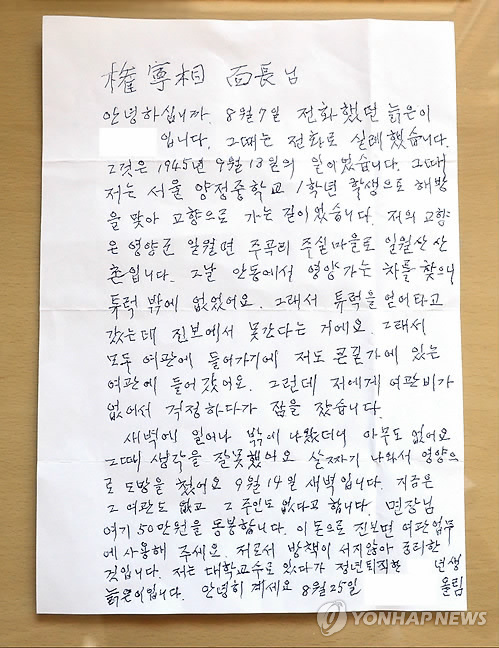 權寧相 面長님
안녕하십니까. 8월7일 전화했던 늙은이
입니다. 그때는 전화로 실례했습니다.
그것은 1945년 9월13일의 일이었습니다. 그때
저는 서울 양정중학교 1학년 학생으로 해방
을 맞아 고향으로 가는 길이었습니다. 저의 고향
은 영양군 일월면 주곡리 주실마을로 일월산 산
촌입니다. 그날 안동에서 영양가는 차를 찾으니
튜럭 밖에 없었어요. 그래서 튜럭을 얻어타고
갔는데 진보에서 못간다는 거에요. 그래서
모두 여관에 들어가기에 저도 큰길가에 있는
여관에 들어갔어요. 그런데 저에게 여관비가
없어서 걱정하다가 잠을 잤습니다.
새벽에 일어나 밖에 나왔더니 아무도 없어요
그때 생각을 잘못했어요 살짜기 나와서 영양으
로 도망을 쳤어요 9월14일 새벽입니다. 지금은
그 여관도 없고 그 주인도 없다고 합니다. 면장님
여기 50만원을 동봉합니다. 이 돈으로 진보면 여관업무
에 사용해 주세요. 저로서 방책이 서지않아 궁리한
것입니다. 저는 대학교수로 있다가 정년퇴직한 년생
늙은이입니다. 안녕히 계세요 8월25일 올림
YONHAPNEWS